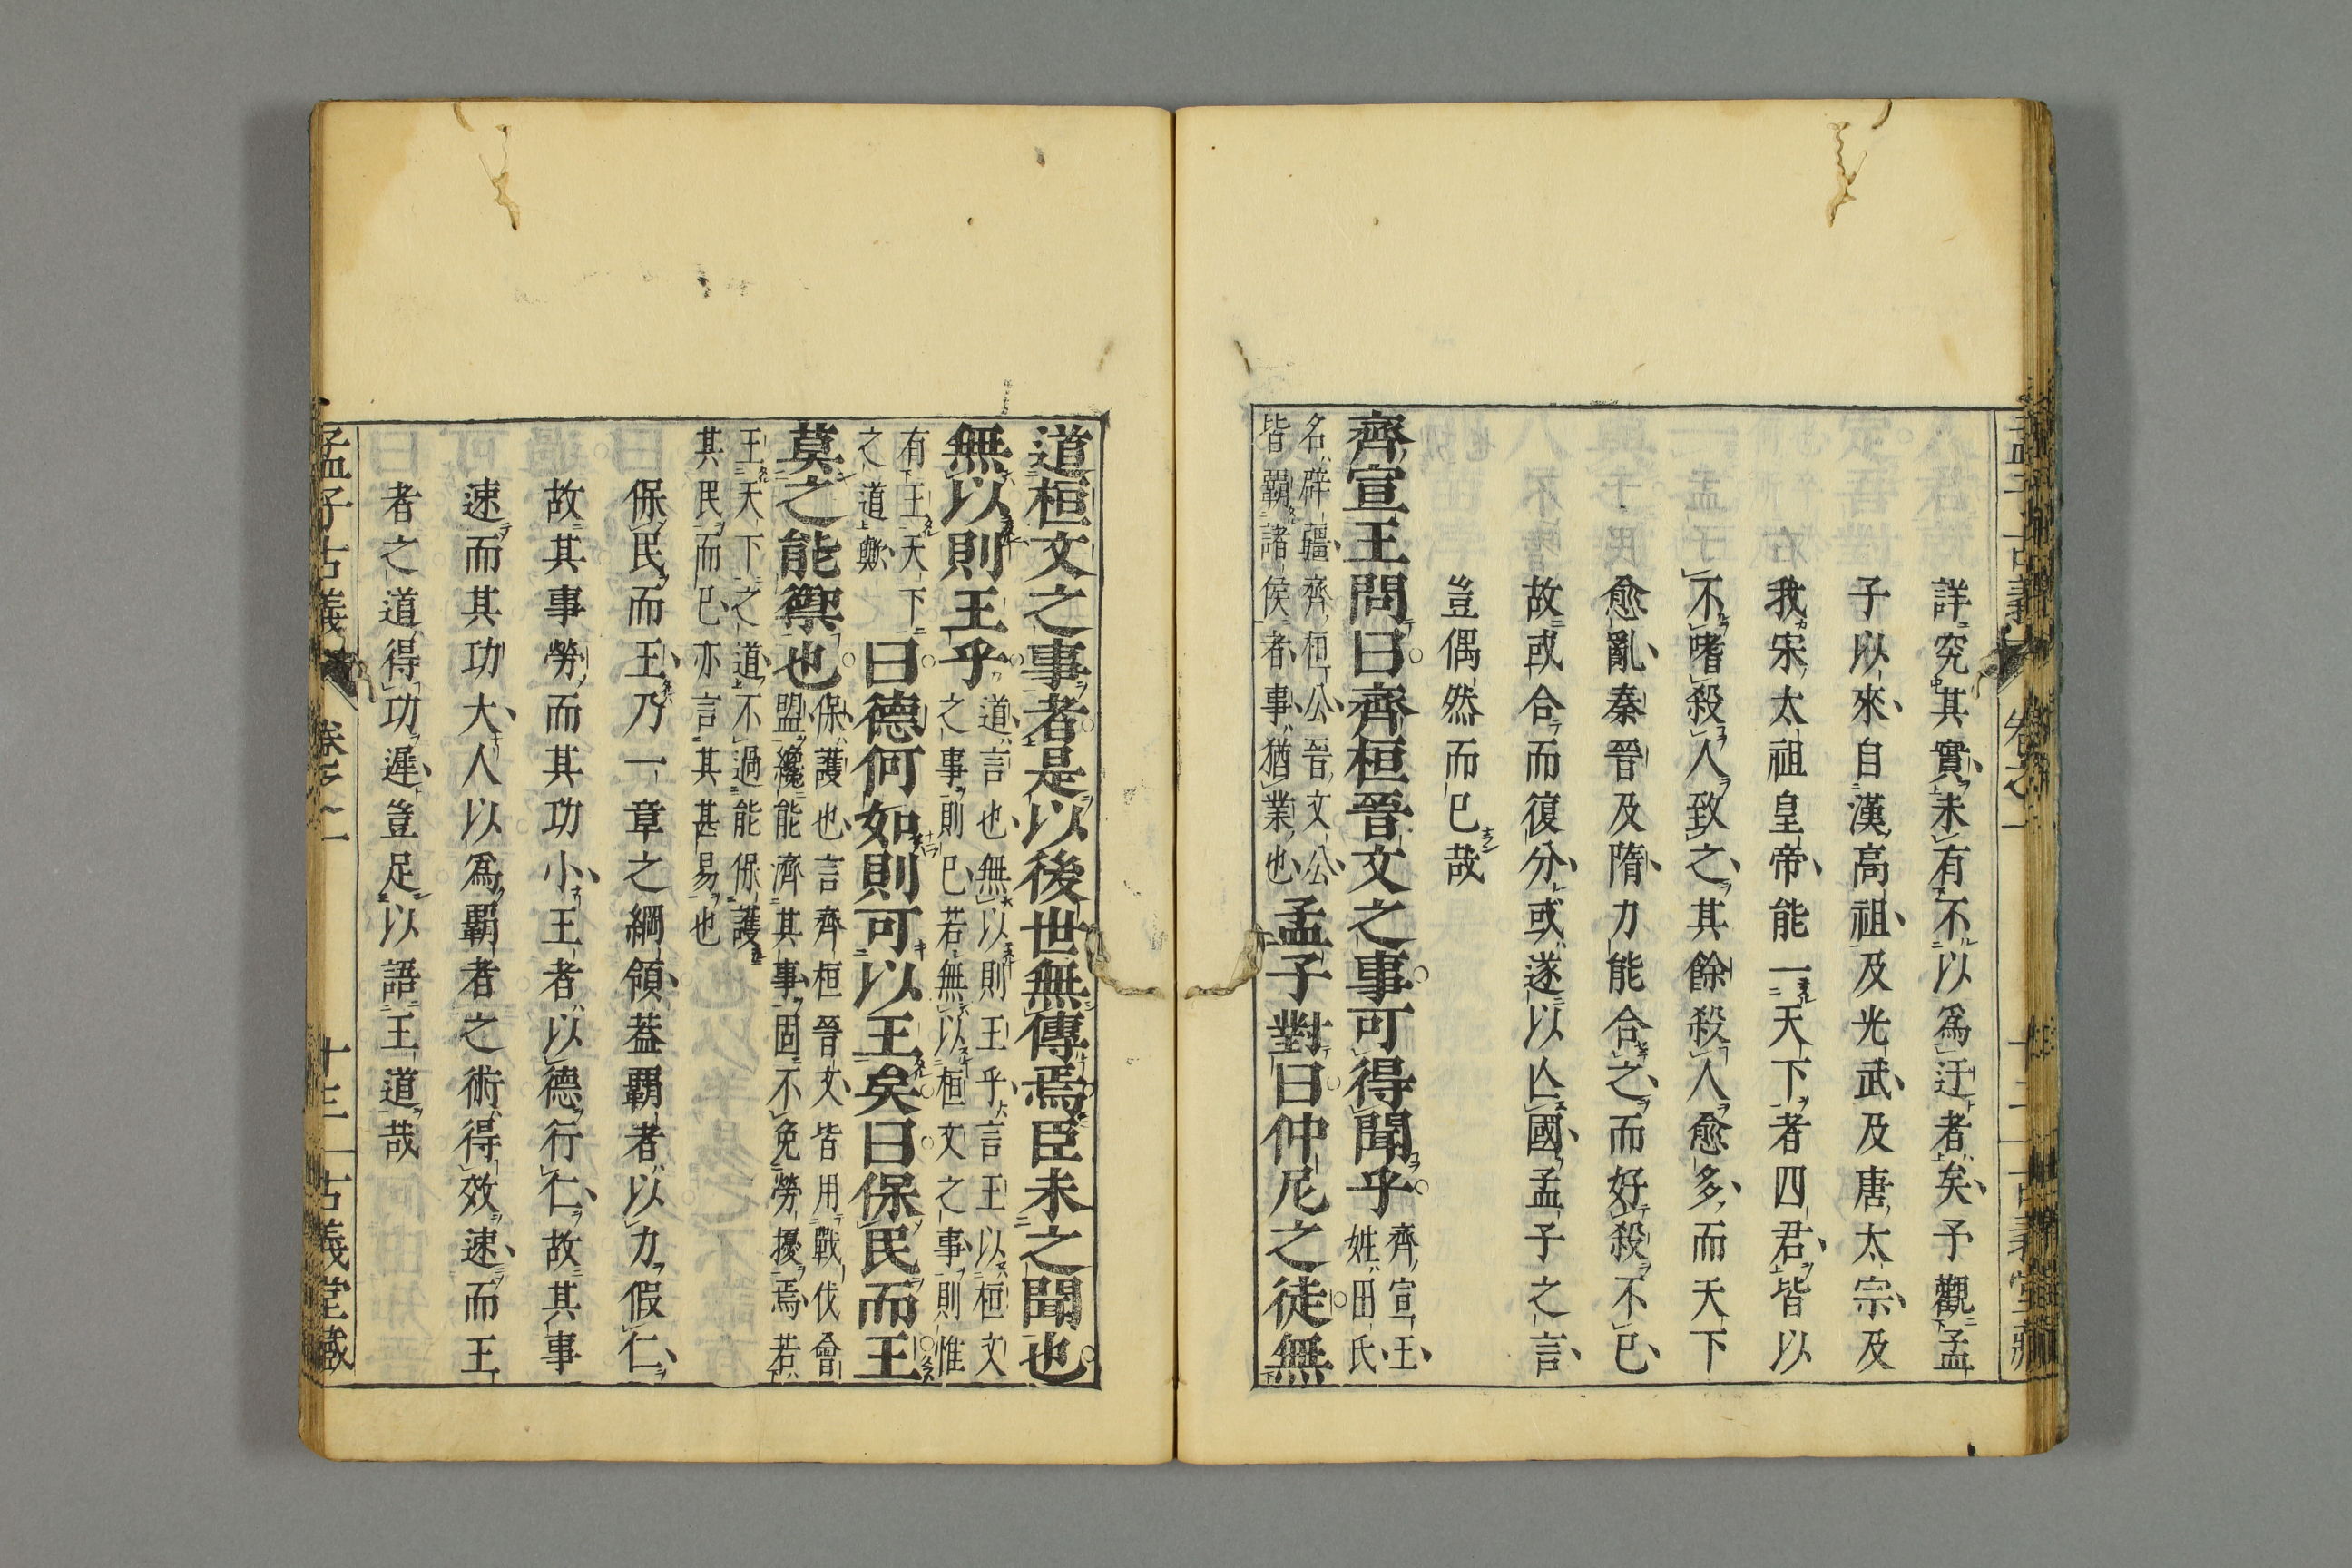 詳究其實未有不以爲迂者矣予觀孟
子以來自漢高祖及光武及唐太宗及
我宋太祖皇帝能一天下者四君皆以
不嗜殺人致之其餘殺人愈多而天下
愈亂秦晉及隋力能合之而好殺不已
故或合而復分或遂以亾國孟子之言
豈偶然而已哉
齊宣王問曰齊桓晉文之事可得聞乎齊宣王
姓田氏
名辟疆齊桓公晉文公
皆覇諸侯者事猶業也孟子對曰仲尼之徒無
道桓文之事者是以後世無傳焉臣未之聞也
無以則王乎道言也無以則王乎言王以桓文
之事則已若無以桓文之事則惟
有王天下
之道歟曰德何如則可以王矣曰保民而王
莫之能禦也保護也言齊桓晉文皆用戰伐會
盟纔能濟其事固不免勞擾焉若
王天下之道不過能保護
其民而已亦言其甚易也
保民而王乃一章之綱領葢覇者以力假仁
故其事勞而其功小王者以德行仁故其事
速而其功大人以爲覇者之術得效速而王
者之道得功遲豈足以語王道哉
孟子古義 卷之一 十三 古義堂藏